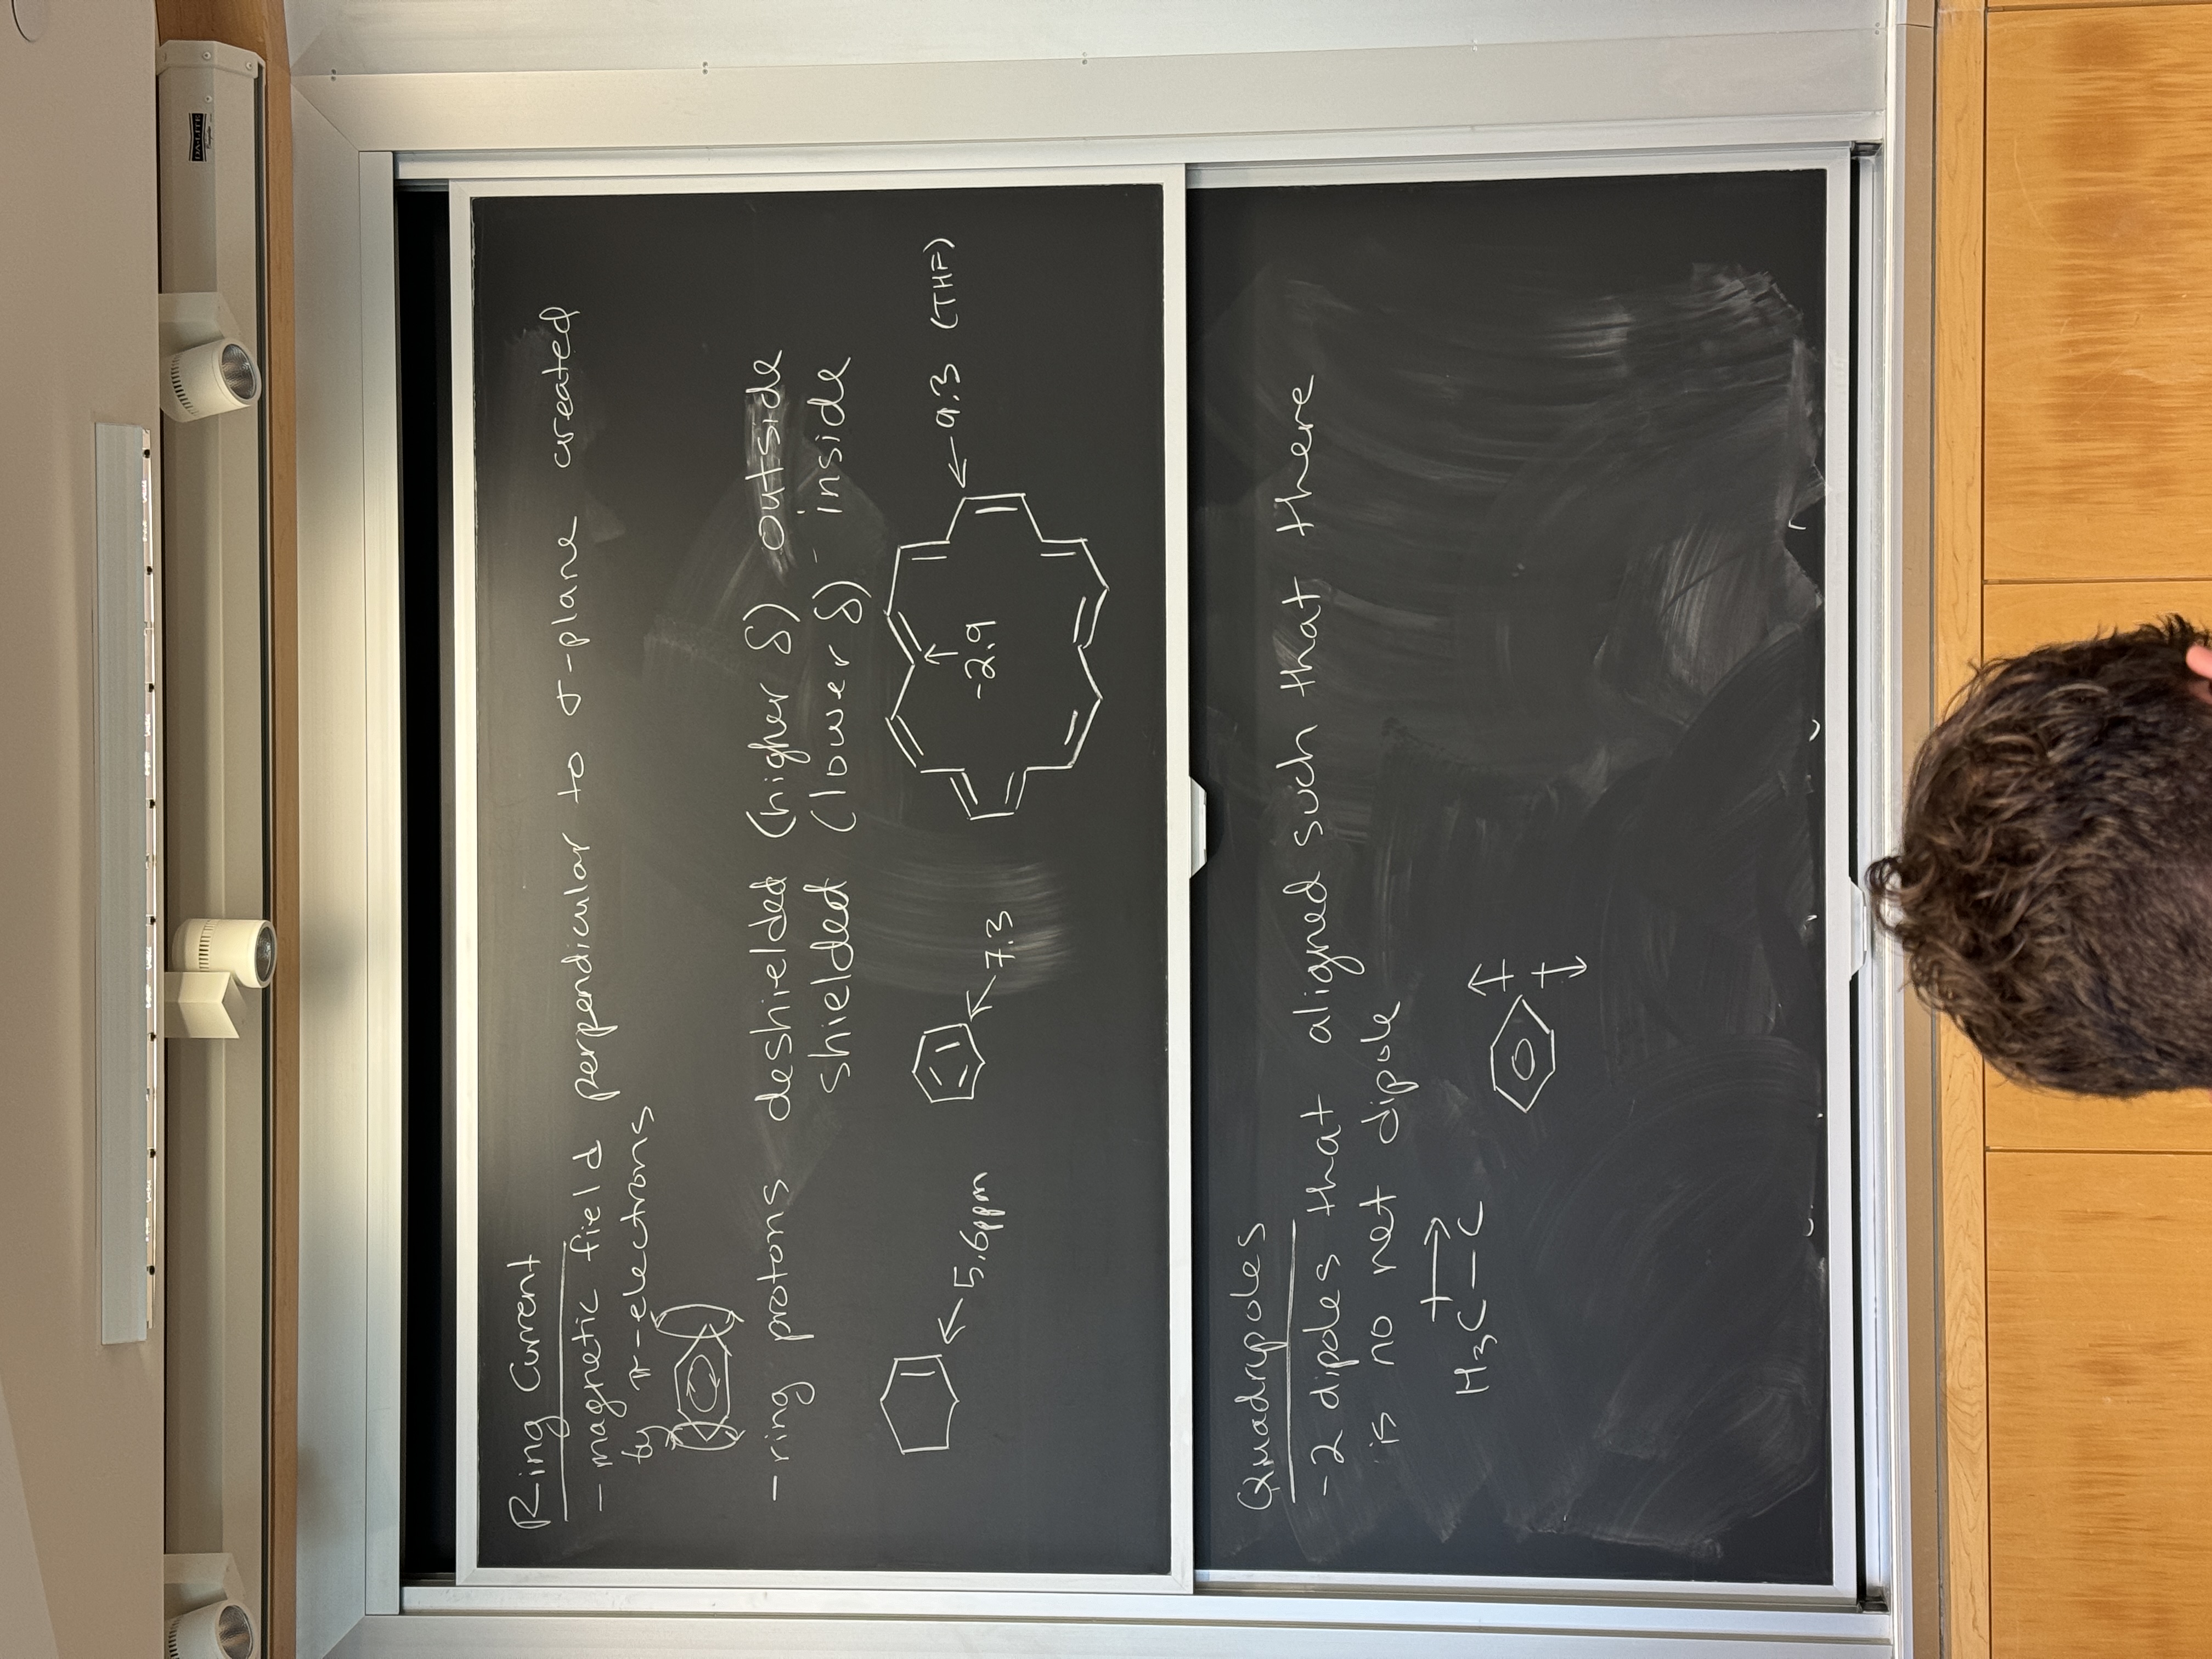 DA-LITE
Ring Current
- magnetic field perpendicular to σ-plane created
by π-electrons
- ring protons deshielded (higher δ) outside
shielded (lower δ) - inside
5.6ppm
7.3
-2.9
9.3 (THF)
Quadrupoles
- 2 dipoles that aligned such that there
is no net dipole
H₃C - C